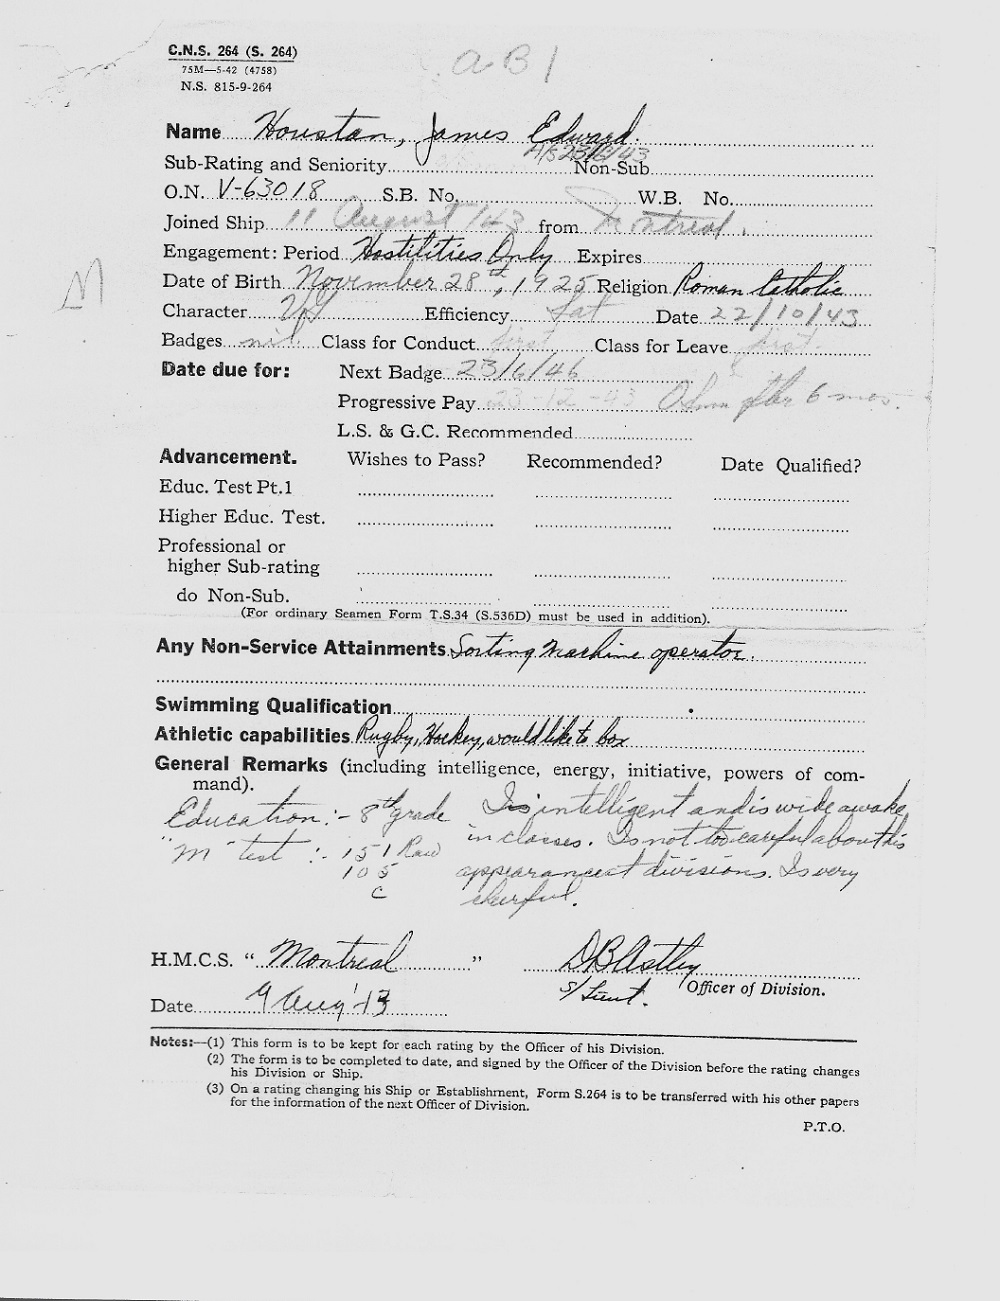 C.N.S. 264 (S. 264)
75M—5-42 (4758)
N.S. 815-9-264
a B 1
Name Houston, James Edward.
A/S 23/6/43
Sub-Rating and Seniority Non-Sub.
O.N. V-63018 S.B. No. W.B. No.
Joined Ship 11 August '43 from Montreal.
Engagement: Period Hostilities Only Expires
M
Date of Birth November 28th, 1925 Religion Roman Catholic
Character VG Efficiency Sat Date 22/10/43
Badges nil. Class for Conduct first Class for Leave first.
Date due for: Next Badge 23/6/46
Progressive Pay 23-12-43 after 6 mos.
L.S. & G.C. Recommended
Advancement. Wishes to Pass? Recommended? Date Qualified?
Educ. Test Pt.1
Higher Educ. Test.
Professional or
higher Sub-rating
do Non-Sub.
(For ordinary Seamen Form T.S.34 (S.536D) must be used in addition).
Any Non-Service Attainments Sorting Machine operator.
Swimming Qualification
Athletic capabilities Rugby, Hockey, would like to box
General Remarks (including intelligence, energy, initiative, powers of com-
mand).
Education :- 8th grade Is intelligent and is wide awake
"M" test :- 151 Raw in classes. Is not too careful about his
105 appearance at divisions. Is very
C cheerful.
H.M.C.S. "Montreal" D B Astley
S/Lieut. Officer of Division.
Date 9 Aug '43
Notes:—(1) This form is to be kept for each rating by the Officer of his Division.
(2) The form is to be completed to date, and signed by the Officer of the Division before the rating changes
his Division or Ship.
(3) On a rating changing his Ship or Establishment, Form S.264 is to be transferred with his other papers
for the information of the next Officer of Division.
P.T.O.